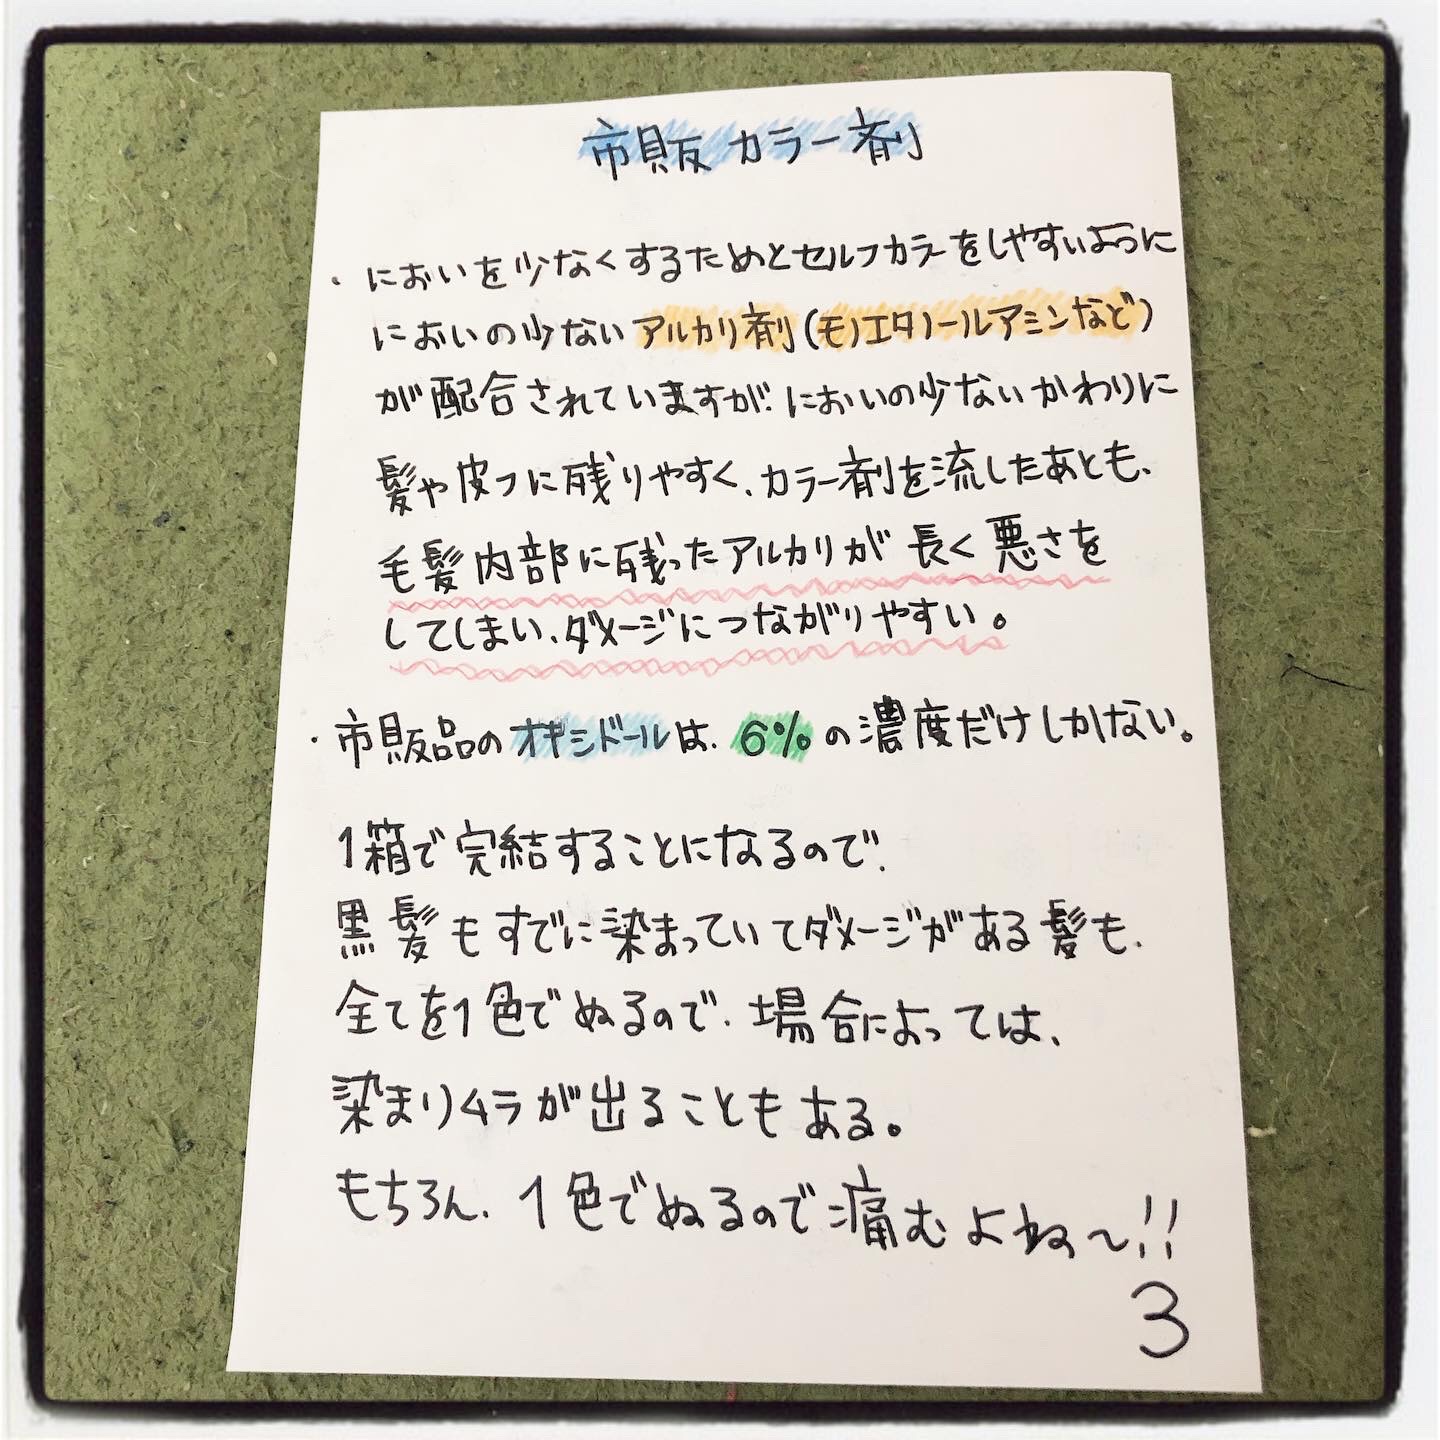 市販カラー剤
・においを少なくするためとセルフカラーをしやすいように
においの少ないアルカリ剤(モノエタノールアミンなど)
が配合されていますが、においの少ないかわりに
髪や皮フに残りやすく、カラー剤を流したあとも、
毛髪内部に残ったアルカリが長く悪さを
してしまい、ダメージにつながりやすい。
・市販品のオキシドールは、6%の濃度だけしかない。
1箱で完結することになるので、
黒髪もすでに染まっていてダメージがある髪も、
全てを1色でぬるので、場合によっては、
染まりムラが出ることもある。
もちろん、1色でぬるので痛むよね〜!!
3